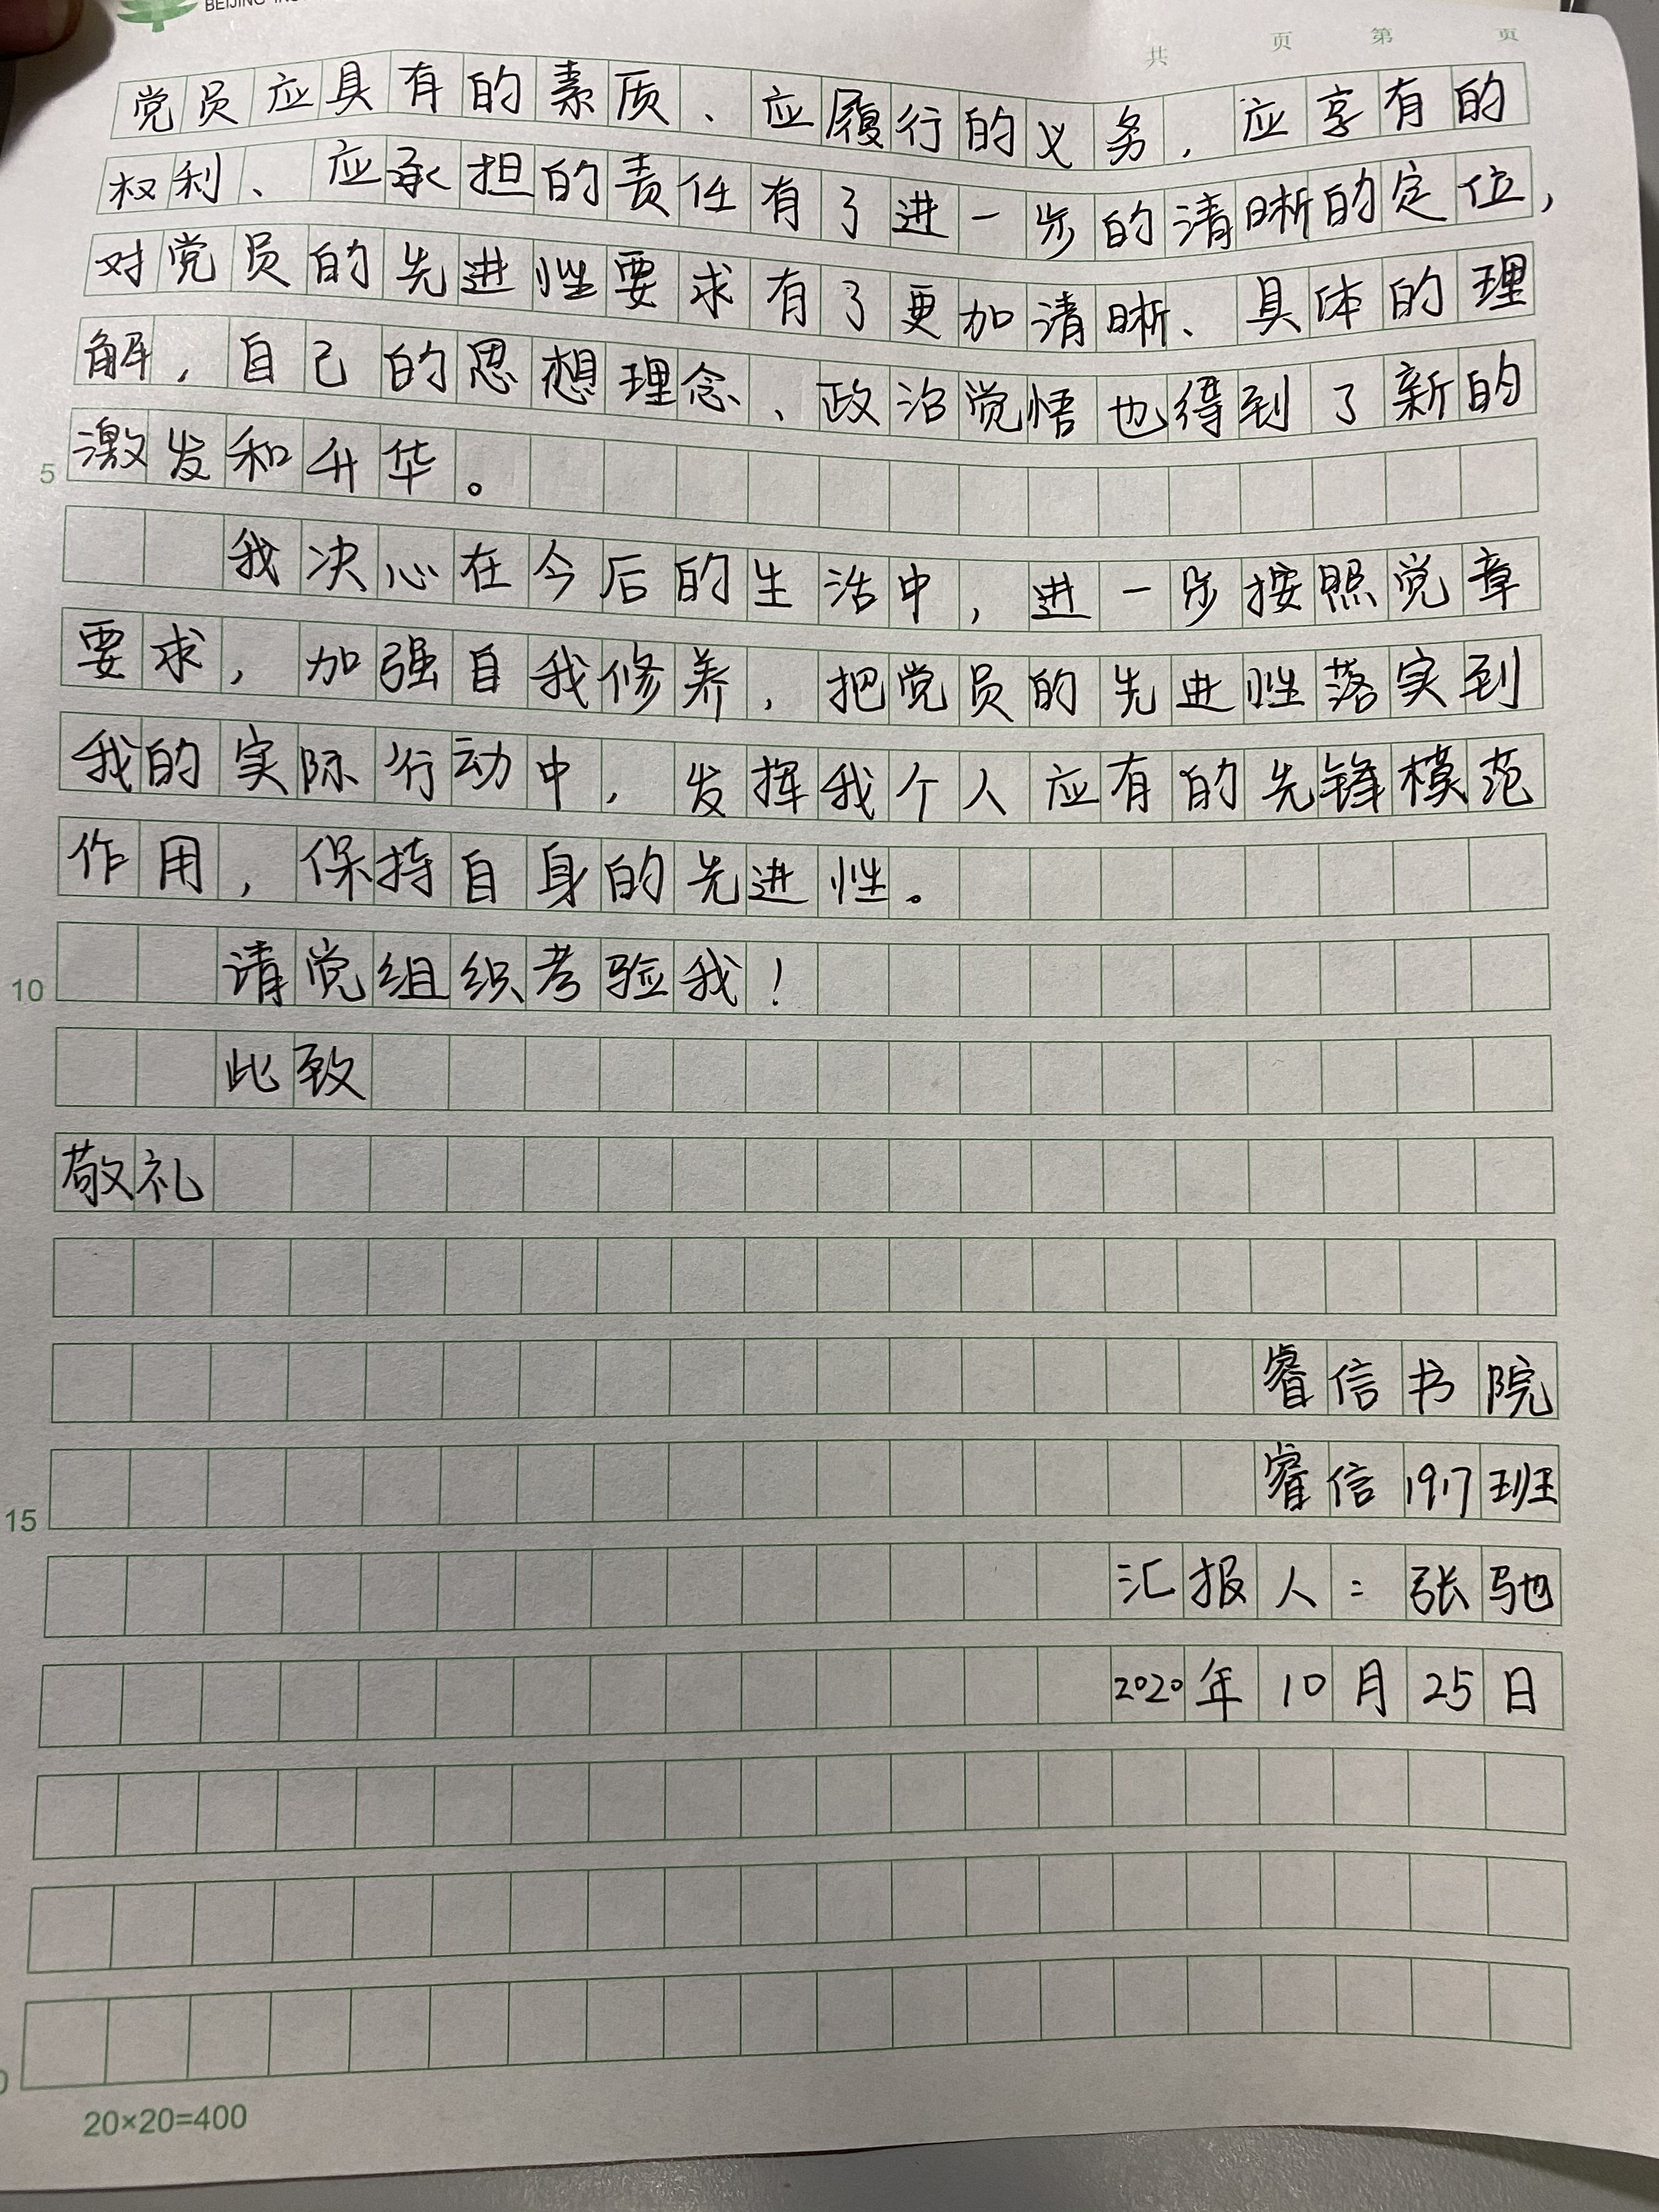 BEIJING
共 页 第 页
党员应具有的素质、应履行的义务,应享有的
权利、应承担的责任有了进一步的清晰的定位,
对党员的先进性要求有了更加清晰、具体的理
解,自己的思想理念、政治觉悟也得到了新的
5 激发和升华。
我决心在今后的生活中,进一步按照党章
要求,加强自我修养,把党员的先进性落实到
我的实际行动中,发挥我个人应有的先锋模范
作用,保持自身的先进性。
10 请党组织考验我!
此致
敬礼
睿信书院
15 睿信1917班
汇报人:张驰
2020年10月25日
20×20=400